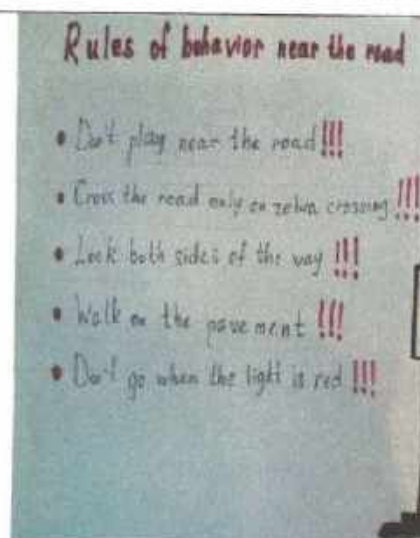 Rules of behavior near the road
• Don't play near the road!!!
• Cross the road only on zebra crossing!!!
• Look both sides of the way!!!
• Walk on the pavement!!!
• Don't go when the light is red!!!